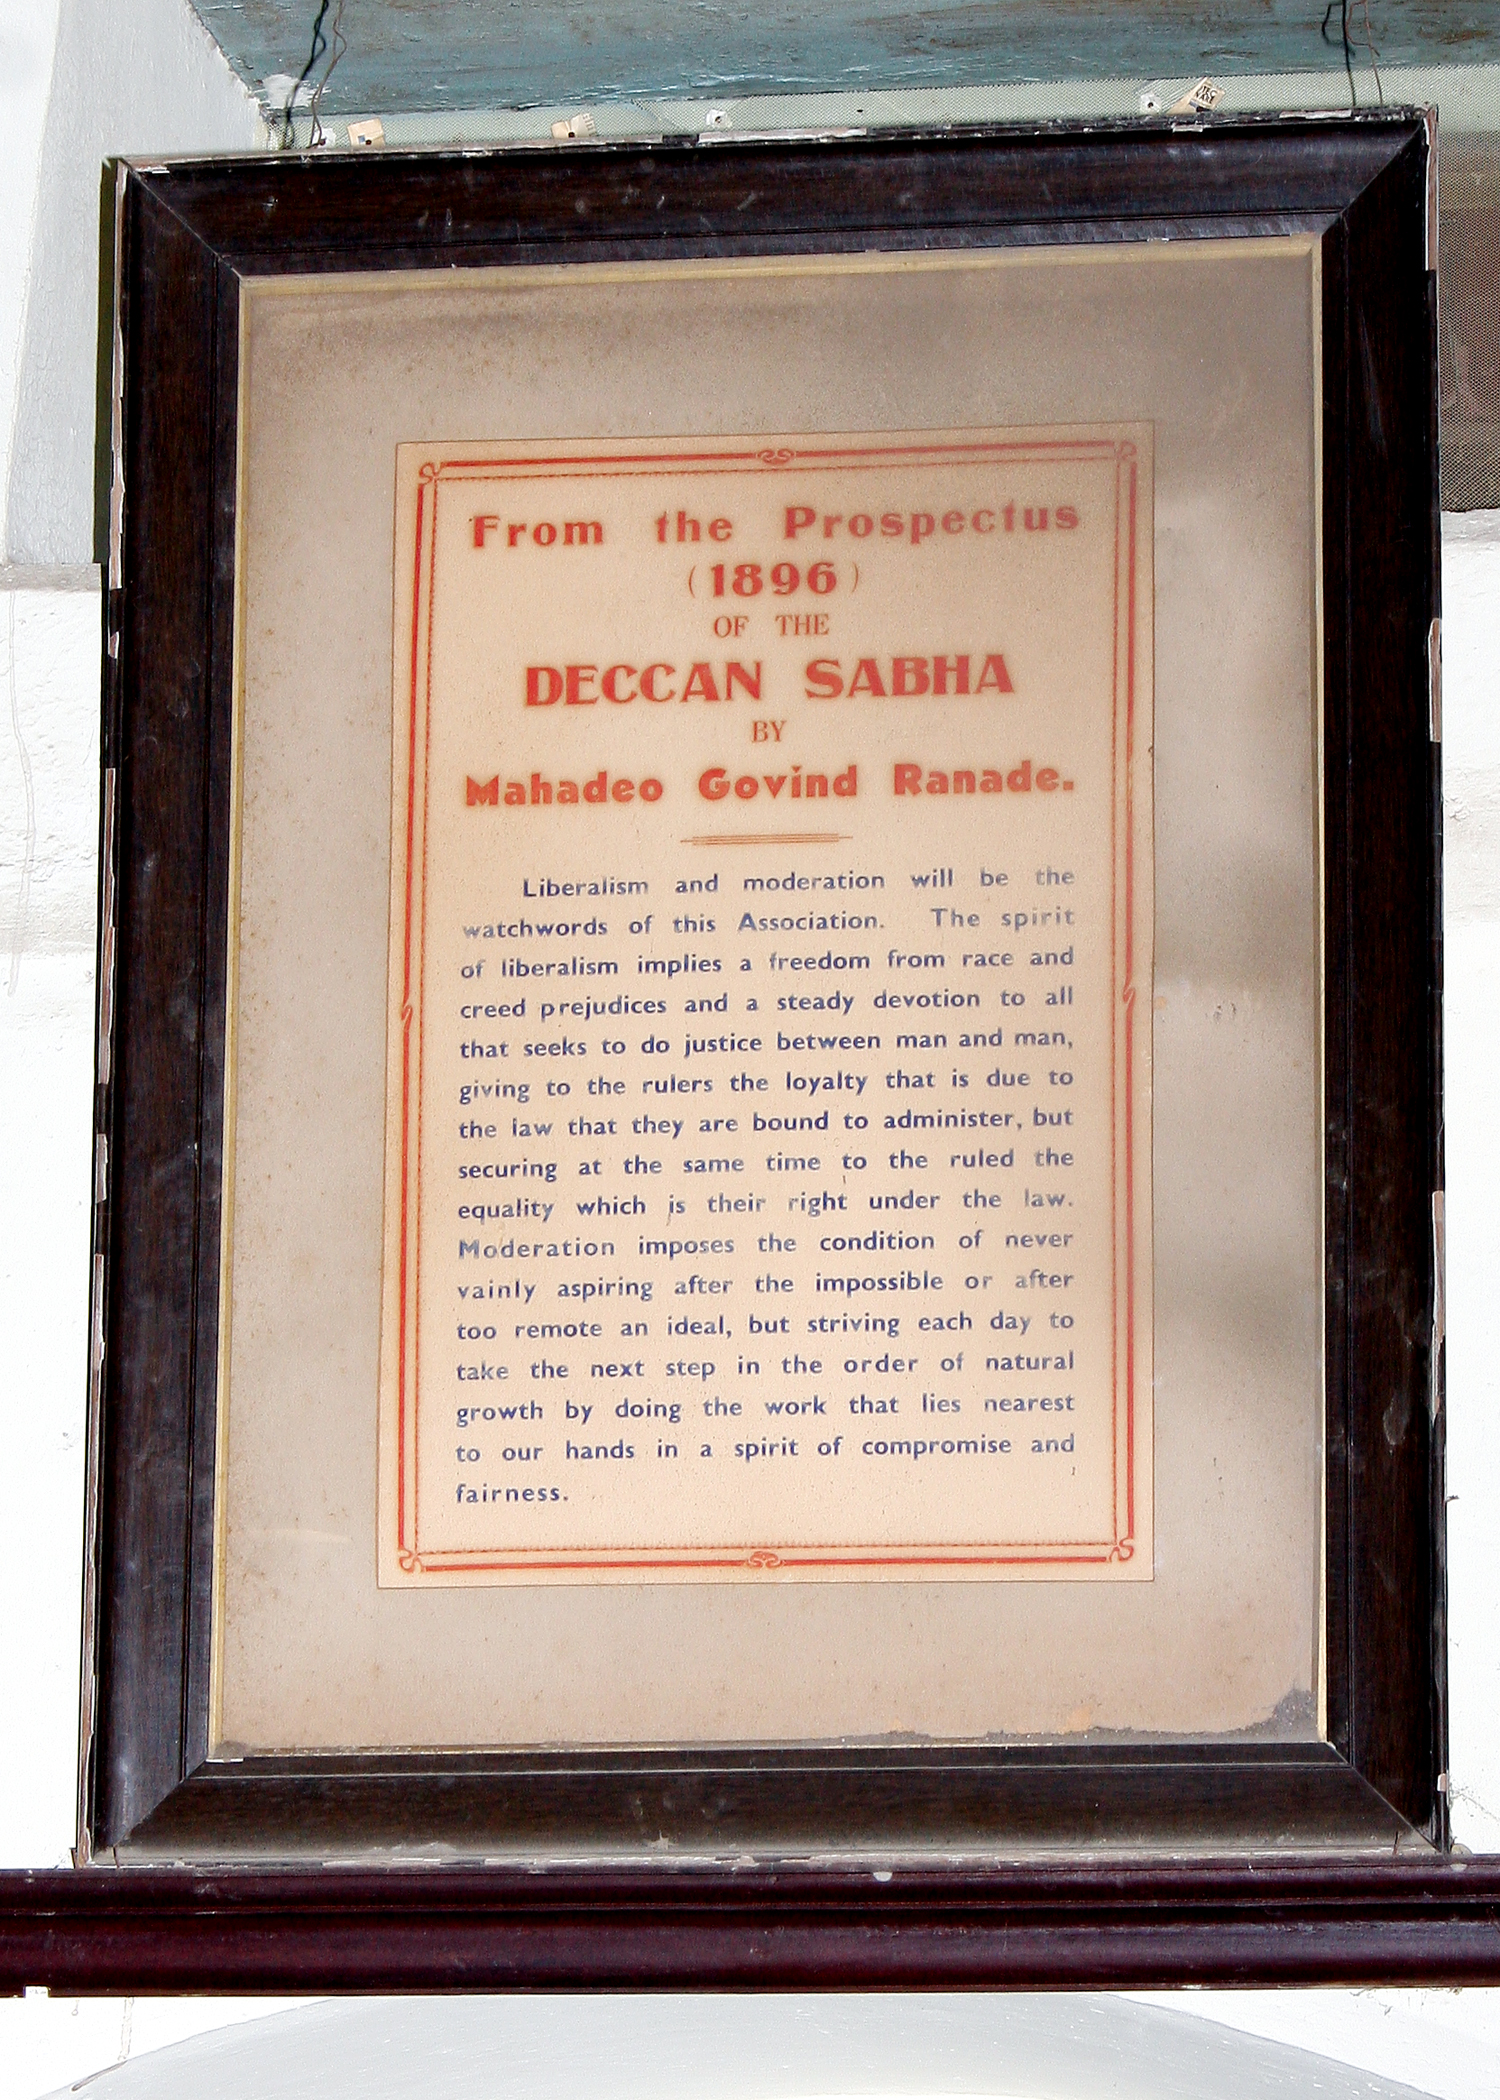 From the Prospectus
(1896)
OF THE
DECCAN SABHA
BY
Mahadeo Govind Ranade.
Liberalism and moderation will be the
watchwords of this Association. The spirit
of liberalism implies a freedom from race and
creed prejudices and a steady devotion to all
that seeks to do justice between man and man,
giving to the rulers the loyalty that is due to
the law that they are bound to administer, but
securing at the same time to the ruled the
equality which is their right under the law.
Moderation imposes the condition of never
vainly aspiring after the impossible or after
too remote an ideal, but striving each day to
take the next step in the order of natural
growth by doing the work that lies nearest
to our hands in a spirit of compromise and
fairness.